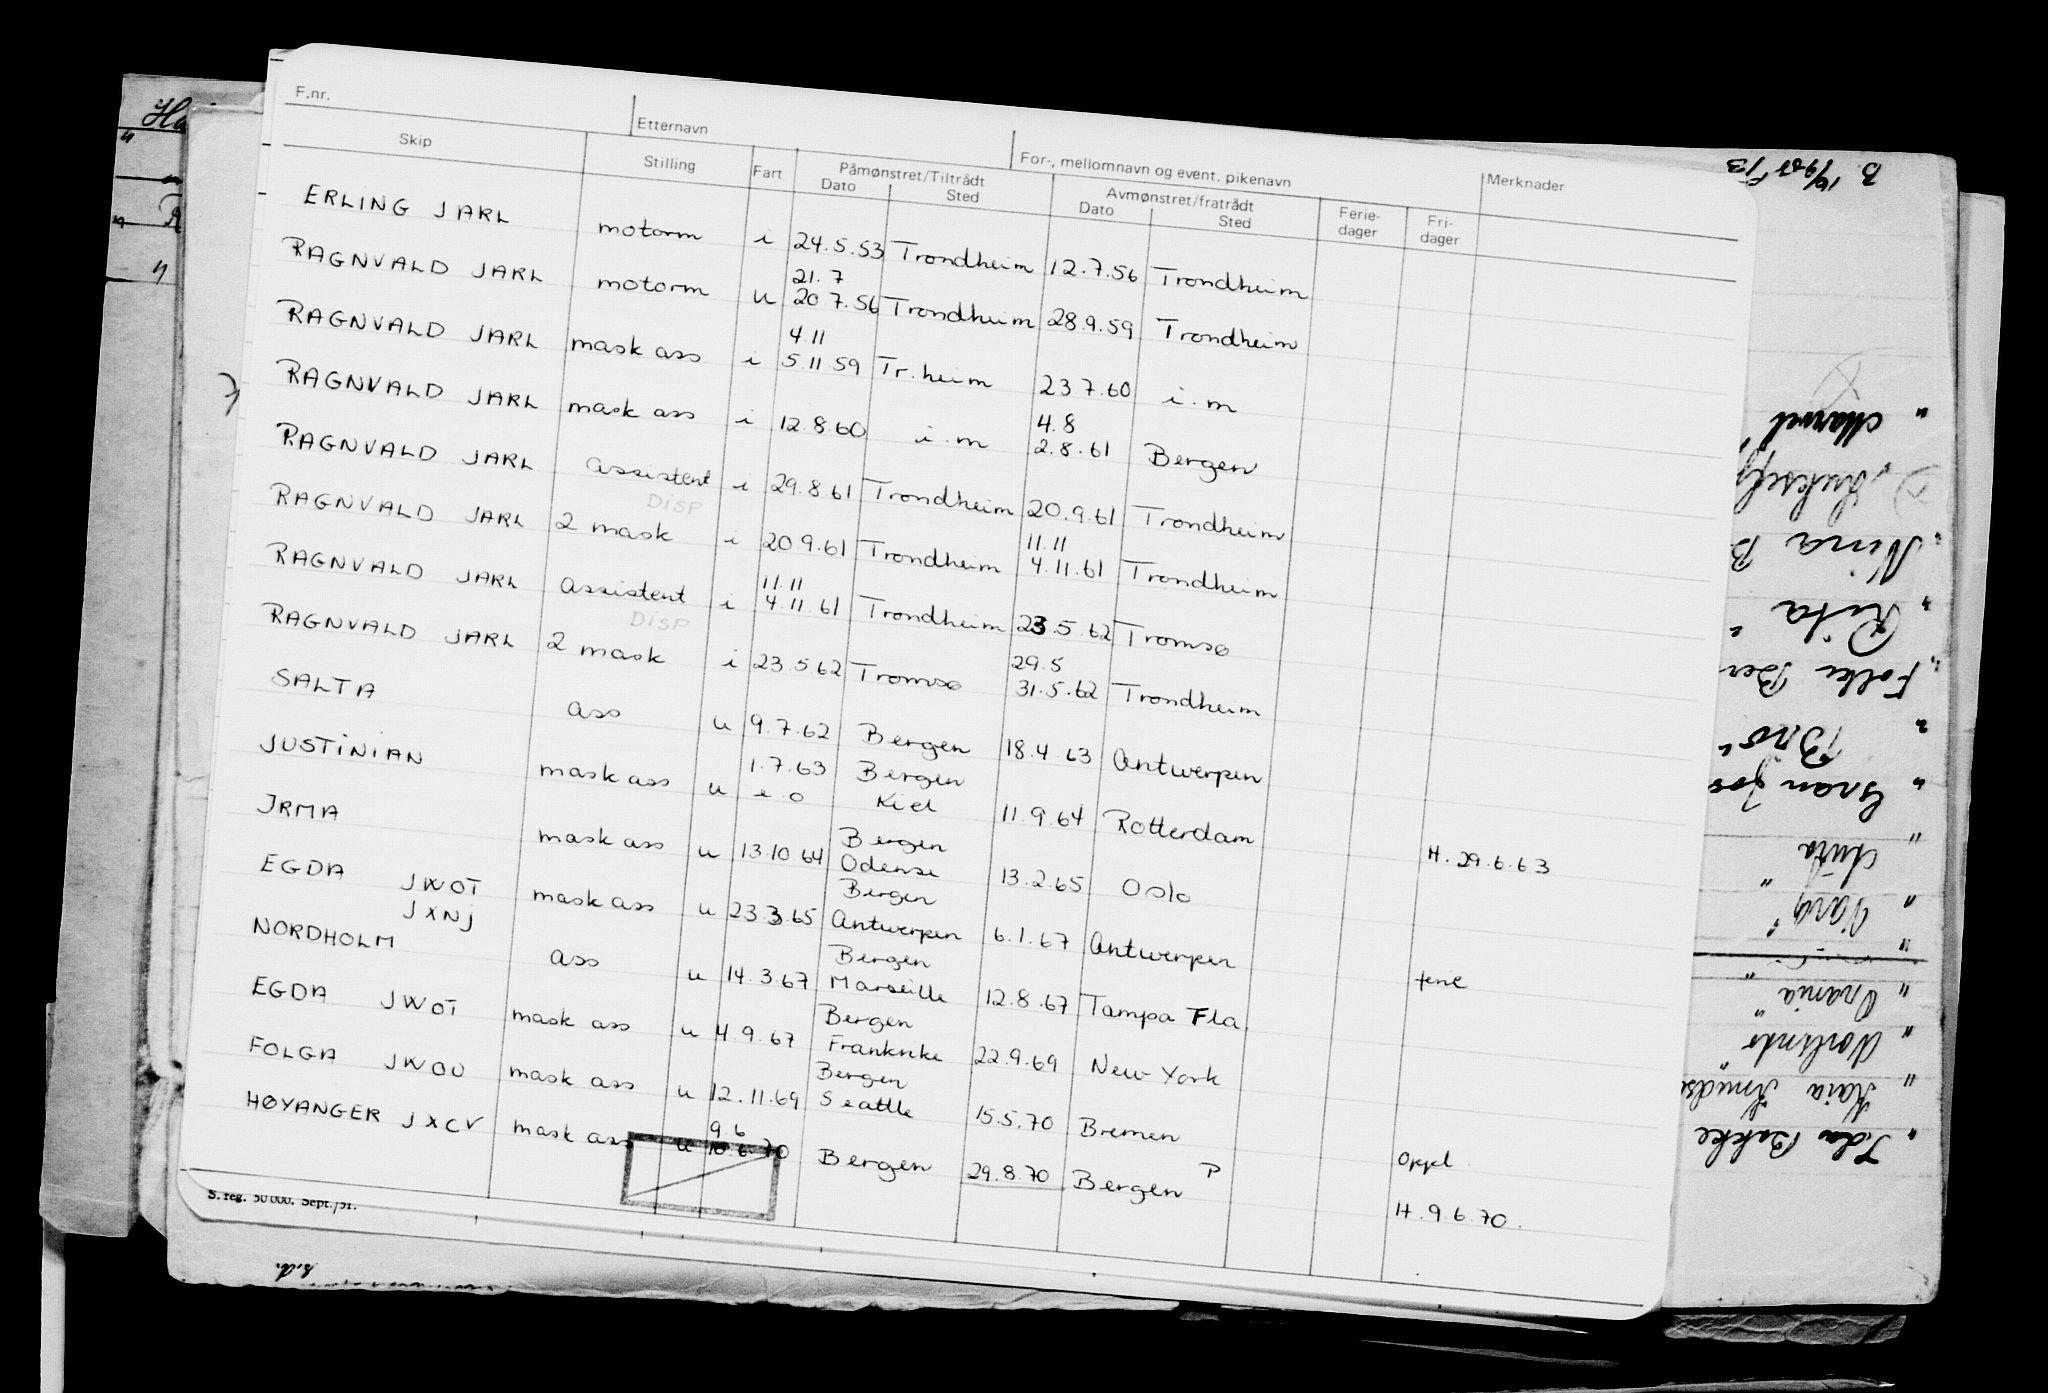 F.nr.
Etternavn
For-, mellomnavn og event. pikenavn
Skip Stilling Fart Påmønstret/Tiltrådt Dato Sted Avmønstret/fratrådt Dato Sted Ferie-dager Fri-dager Merknader
ERLING JARL motorm i 24.5.53 Trondheim 12.7.56 Trondheim
21.7
RAGNVALD JARL motorm u 20 7.56 Trondheim 28.9.59 Trondheim
4.11
RAGNVALD JARL mask ass i 5.11 59 Tr.heim 23 7.60 i.m
4.8
RAGNVALD JARL mask ass i 12.8 60 i.m 2.8.61 Bergen
RAGNVALD JARL assistent i 29.8 61 Trondheim 20.9.61 Trondheim
DISP 11.11
RAGNVALD JARL 2 mask i 20.9.61 Trondheim 4.11.61 Trondheim
11.11
RAGNVALD JARL assistent i 4.11.61 Trondheim 23.5.62 Tromsø
DISP 29.5
RAGNVALD JARL 2 mask i 23.5.62 Tromsø 31.5.62 Trondheim
SALTA ass u 9.7.62 Bergen 18.4.63 Antwerpen
1.7.63 Bergen
JUSTINIAN mask ass u i.o Kiel 11.9.64 Rotterdam H. 29.6.63
Bergen
IRMA mask ass u 13.10 64 Odense 13.2.65 Oslo
Bergen
EGDA JWOT mask ass u 23.3.65 Antwerpen 6.1.67 Antwerpen ferie
JXNJ Bergen
NORDHOLM ass u 14.3.67 Marseille 12.8.67 Tampa Fla
Bergen
EGDA JWOT mask ass u 4.9.67 Frankrike 22.9.69 New York
Bergen
FOLGA JWOU mask ass u 12.11.69 Seattle 15.5.70 Bremen Oppl.
9 6
HØYANGER JXCV mask ass u 10.6.70 Bergen 29.8.70 Bergen P H. 9.6.70.
S. reg. 50 000. Sept./51.
s.d.
Marvel
Nina B.
Rita
Brö
Anita
Varg
Norlinto
Maia
Ida Bakke